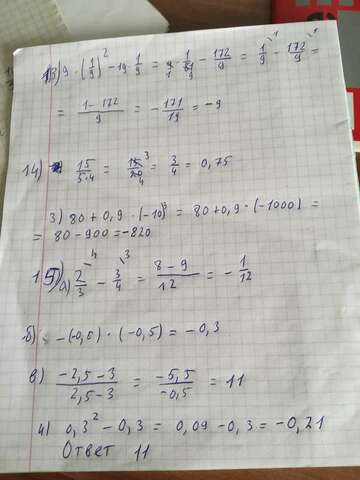 13) 9 · (1/9)² - 19 1/9 = 9 · 1/81 - 172/9 = 1/9 - 172/9 =
= 1 - 172/9 = - 171/19 = -9
14) 15/5·4 = 15/20 = 3/4 = 0,75
3) 80 + 0,9 · (-10)³ = 80 + 0,9 · (-1000) =
= 80 - 900 = -820
15) а) 2/3 - 3/4 = 8 - 9/12 = - 1/12
б) -(-0,6) · (-0,5) = -0,3
в) -2,5 - 3/2,5 - 3 = -5,5/-0,5 = 11
4) 0,3² - 0,3 = 0,09 - 0,3 = -0,21
Ответ 11